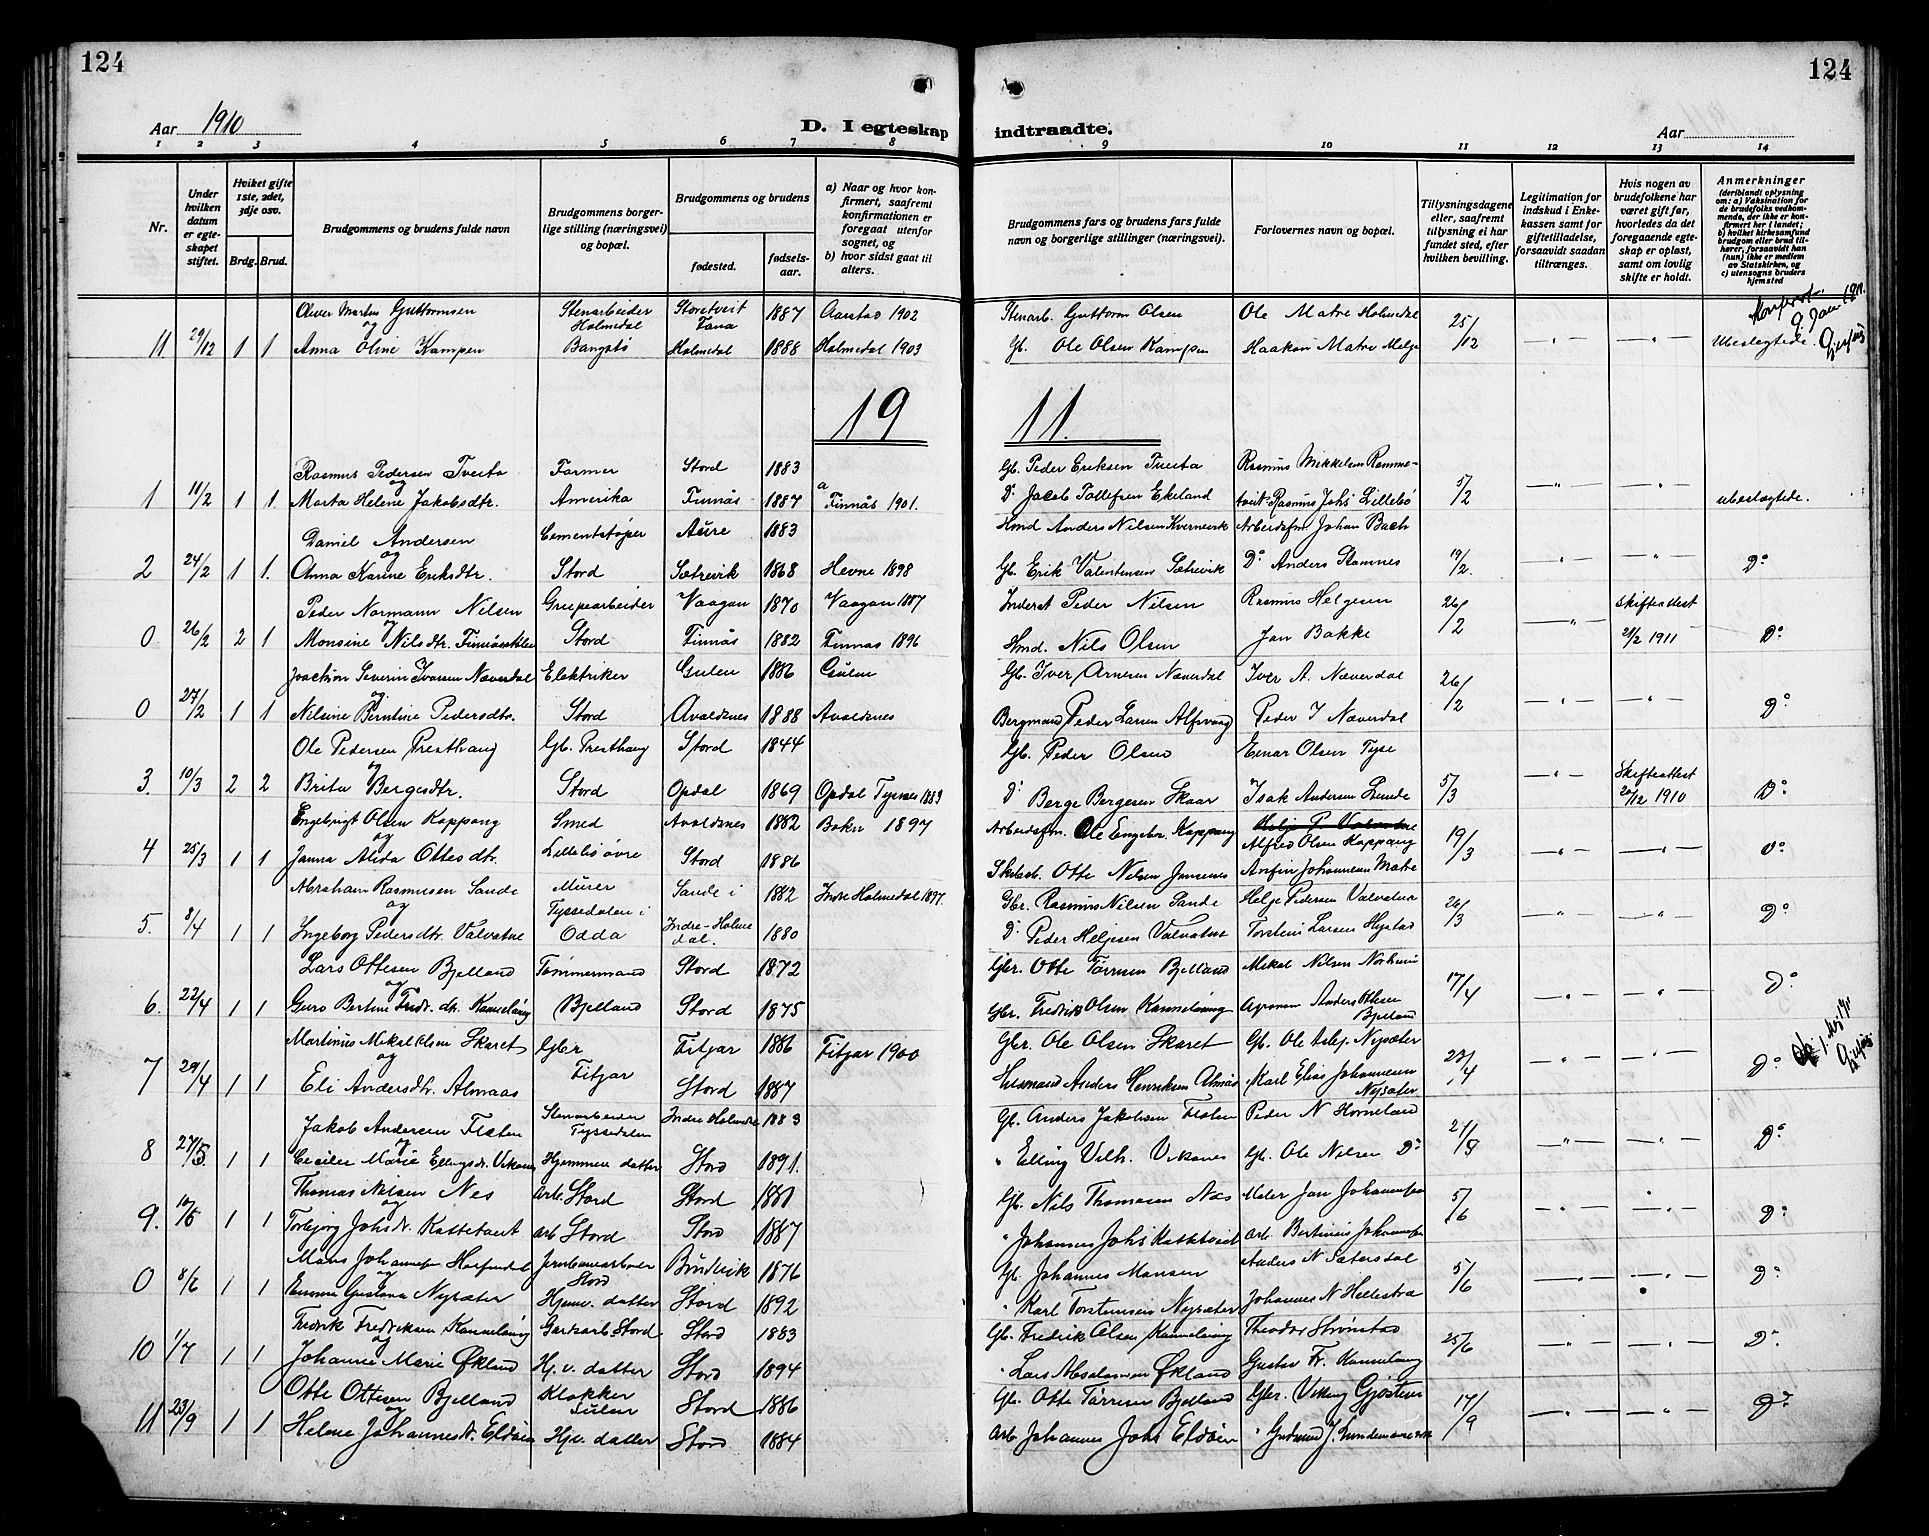 124
124
Aar 1910
D. I egteskap
indtraadte.
Aar
1 2 3 4 5 6 7 8
9 10 11 12 13 14
Nr.
Under hvilken datum er egteskapet stiftet.
Hviket gifte 1ste, 2det, 3dje osv.
Brdg. Brud.
Brudgommens og brudens fulde navn
Brudgommens borgerlige stilling (næringsvei) og bopæl.
Brudgommens og brudens
fødested.
fødselsaar.
a) Naar og hvor konfirmert, saafremt konfirmationen er foregaat utenfor sognet, og
b) hvor sidst gaat til alters.
Brudgommens fars og brudens fars fulde navn og borgerlige stillinger (næringsvei).
Forlovernes navn og bopæl.
Tillysningsdagene eller, saafremt tillysning ei har fundet sted, efter hvilken bevilling.
Legitimation for indskud i Enkekassen samt for giftetilladelse, forsaavidt saadan tiltrænges.
Hvis nogen av brudefolkene har været gift før, hvorledes da det foregaaende egteskap er opløst, samt om lovlig skifte er holdt.
Anmerkninger
(deriblandt oplysning om: a) Vaksination for de brudefolks vedkommende, der ikke er konfirmert her i landet; b) hvilket kirkesamfund brudgom eller brud tilhører, forsaavidt han (hun) ikke er medlem av Statskirken, og c) utensogns bruders hjemsted
Oliver Martin Guttormsen Stenarbeider Storetveit 1887 Aarstad 1902 Stenarb. Guttorm Olsen Ole Matre Holmedal 25/12
og Holmedal Fana
11 29/12 1 1 Anna Oline Kampen Bangstø Holmedal 1888 Holmedal 1903 Gb. Ole Olsen Kampen Haakon Matre Helje Ubeslegtede.
19 11.
Rasmus Pedersen Tveita Farmer Stord 1883 Gb. Peder Eriksen Tveita Rasmus Mikkelsen Ramme- 5/2
og
1 11/2 1 1 Marta Helene Jakobsdtr. Amerika Finnås 1887 a Finnås 1901. Do Jacob Tollefsen Ekeland tveit Rasmus Johs Lillebø ubeslegtede.
Daniel Andersen Cementstøper Aure 1883 Hmd Anders Nilsen Kvernevik Arbeidsfm. Johan Bach 19/2
og
2 24/2 1 1. Anna Karine Eriksdtr. Stord Sætrevik 1868 Hevne 1898 Gb. Erik Valentinsen Sætrevik Do Anders Stamnes Do
Peder Normann Nilsen Grubearbeider Vaagan 1870 Vaagan 1887 Inderst Peder Nilsen Rasmus Helgesen 26/2 Skifteattest
og
0 26/2 2 1 Monsine Nilsdtr. Stord Finnås 1882 Finnås 1896 Hmd. Nils Olsen Jan Bakke 21/2 1911 Do
Joachim Severin Ivarsen Næverdal Elektriker Gulen 1886 Gulen Gb. Iver Arnesen Næverdal Iver A. Næverdal 26/2
og
0 27/2 1 1 Nilsine Berntine Pedersdtr. Stord Avaldsnes 1888 Avaldsnes Bergmand Peder Larsen Alfsvaag Peder I Næverdal Do
Ole Pedersen Presthaug Gb. Presthaug Stord 1844 Gb. Peder Olsen Einar Olsen Tyse
og
3. 10/3 2 2 Brita Bergesdtr. Stord Opdal 1869 Opdal Tysnes 1883 Do Berge Bergesen Skaar Isak Andersen Lunde 5/3 Skifteattest 20/12 1910 Do
Engebrigt Olsen Kappang Smed Avaldsnes 1882 Bokn 1897 Arbeidsfm. Ole Engebr. Kappang Helje P. Valvatne Alfred Olsen Kappang 19/3
og
4 25/3 1 1 Janna Alida Ottesdtr. Lillebø øvre Stord 1886 Otte Nilsen Arnfin Johannessen Matre Do
Abraham Rasmusen Sande Murer Sande i 1882 Indre Holmedal 1897. Gbr. Rasmus Nilsen Sande Helje Pedersen Valvatna 26/3
og Tyssedalen i
5. 8/4 1 1 Ingeborg Pedersdtr. Valvatne Odda Indre-Holmedal. 1880 Do Peder Heljesen Valvatne Torstein Larsen Hystad Do
Lars Ottesen Bjelland Tømmermand Stord 1872 Gbr. Otte Tørresen Bjelland Mikal Nilsen 17/4
og
6. 22/4 1 1 Guro Bertine Fredr. dtr. Kannelønning Bjelland Stord 1875 Gbr. Fredrik Olsen Kannelønning Agronom Anders Ottesen Bjelland Do
Martinus Mikal Olsen Skaret Gbr Fitjar 1886 Fitjar 1900 Gbr. Ole Olsen Skaret Gb. Ole Aslej. Nysæter 23/4
og
7 29/4 1 1 Eli Andersdtr. Almaas Fitjar Stord 1887 Husmand Anders Henriksen Almås Karl Elias Johannesen Nysæter Do
Jakob Andersen Flaten Stenarbeider Indre Holmedal 1883 Gb. Anders Jakobsen Flaten Peder N Horneland 21/5
og Tyssedalen
8 27/5. 1 1 Cecilie Marie Ellingsdr. Vikanes Hjemmev. datter Stord 1891. " Elling Vilh. Vikanes Gb. Ole Nilsen Do Do
Thomas Nilsen Nes arb. Stord Stord 1881 Gb. Nils Thomasen Næs Maler Jan Johannessen 5/6
og
9. 10/6 1 1 Torbjørg Johsdr. Kattetveit arb Stord Stord 1887 " Johannes Johs Kattetveit arb. Bertinius Johannessen Do
Mons Johannessen Jernbanearbeider 1876 Gb. Johannes Monsen Anders N Sætersdal 5/6
og Stord
0 8/6 1 1 Gustava Nysæter Hjemv. datter Stord 1892 " Karl Torstensen Nysæter Johannes N Hellestra Do
Fredrik Fredriksen Kannelønning Gardsarb Stord Stord 1883 Gb. Fredrik Olsen Kannelønning Theodor Strønstad 25/6
og
10 1/7 1 1 Johanne Marie Økland Hj. v. datter Stord 1894 " Lars Absalonsen Økland Gustav Fr. Kannelønning Do
Otte Ottesen Bjelland Klokker Stord 1886 Gb. Otte Tørresen Bjelland Gbr. Viking Gjøstein 17/9
og Sulen
11 23/9 1 1 Helene Johannesdr. Eldøen Hjv. datter Stord 1884 arb. Johannes Johs Eldøen " Do